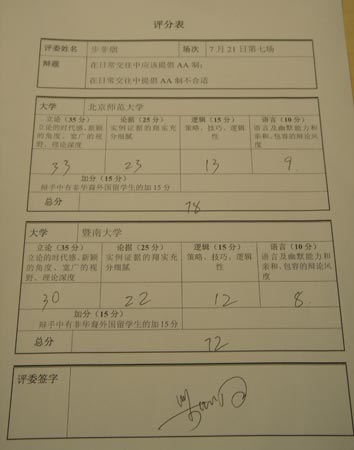 评分表
评委姓名 步非烟 场次 7月21日第七场
辩题 在日常交往中应该提倡AA制;
在日常交往中提倡AA制不合适
大学 北京师范大学
立论(35分) 论据(25分) 逻辑(15分) 语言(10分)
立论的时代感、新颖 实例证据的翔实充 策略、技巧、逻辑 语言及幽默能力和
的角度、宽广的视 分细腻 性 亲和、包容的辩论风
野、理论深度 度
33 23 13 9.
加分(15分)
辩手中有非华裔外国留学生的加15分
总分 78
大学 暨南大学
立论(35分) 论据(25分) 逻辑(15分) 语言(10分)
立论的时代感、新颖 实例证据的翔实充 策略、技巧、逻辑 语言及幽默能力和
的角度、宽广的视 分细腻 性 亲和、包容的辩论风
野、理论深度 度
30 22 12 8.
加分(15分)
辩手中有非华裔外国留学生的加15分
总分 72
评委签字